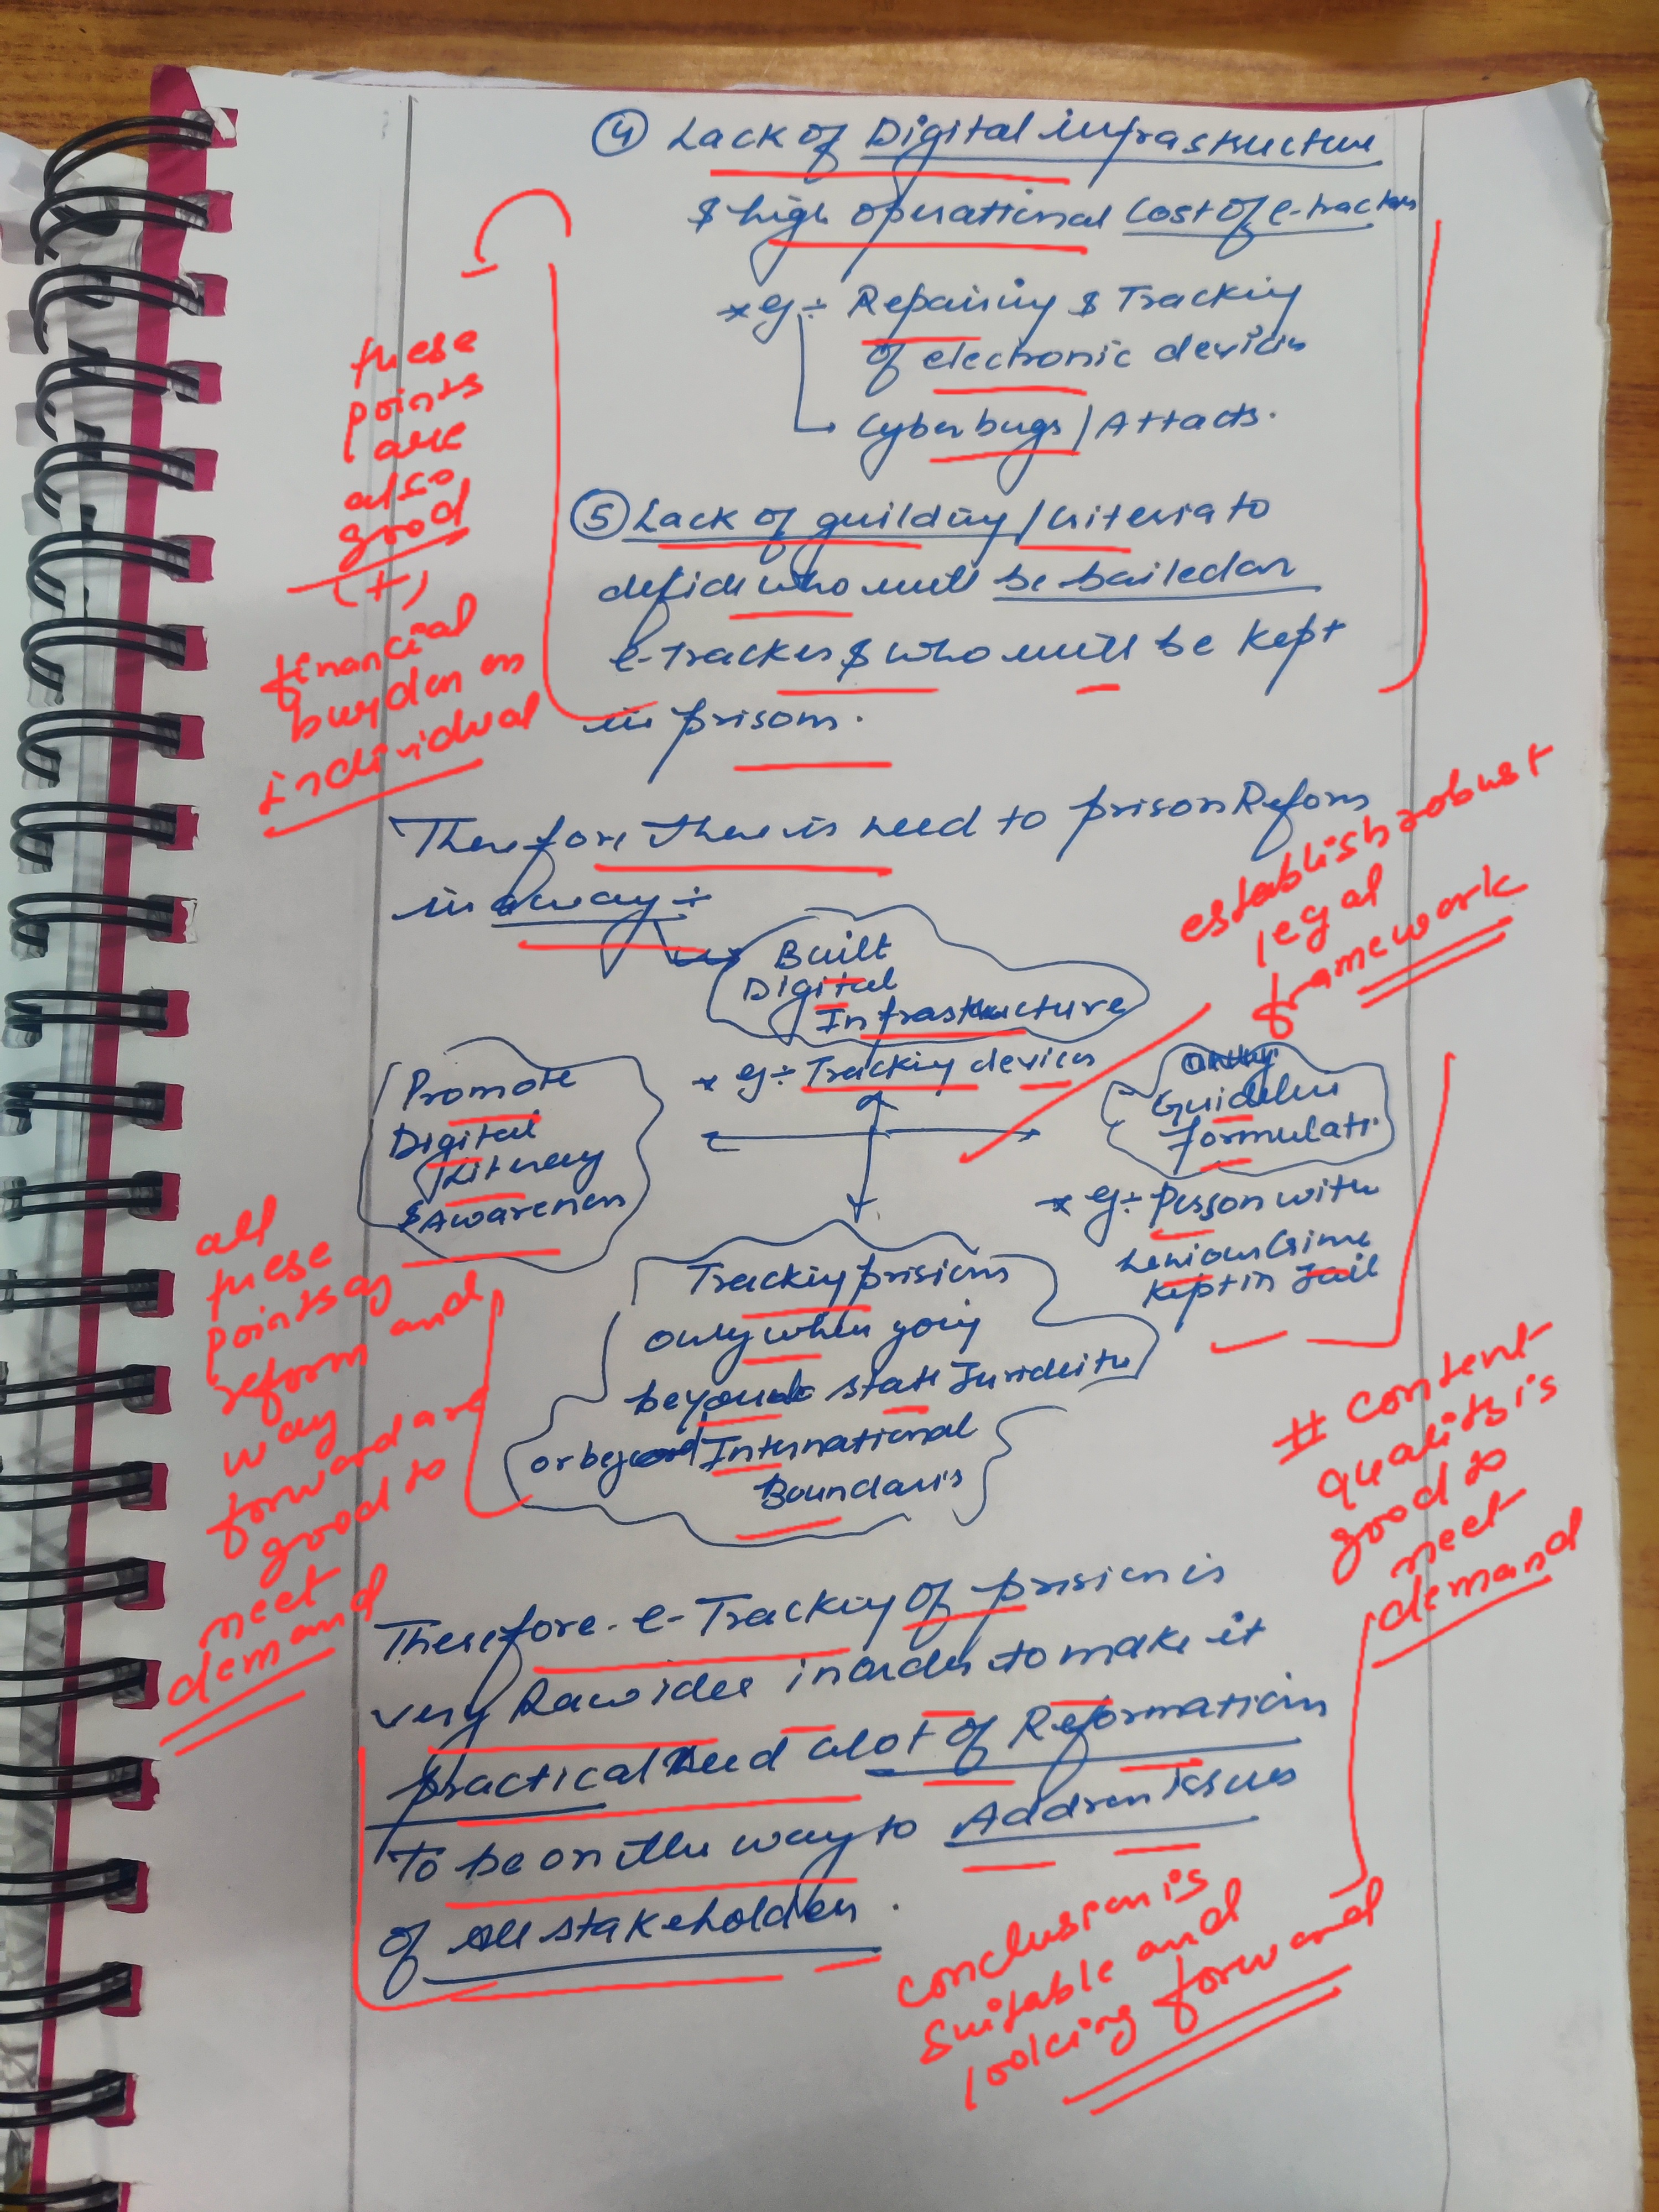 ④ Lack of Digital infrastructure
& high operational Cost of e-trackers
* eg ÷ Repairing & Tracking
of electronic devices
→ Cyberbugs / Attacts.
⑤ Lack of guilding / Criteria to
defide who will be bailed on
e-tracker & who will be kept
in prisons.
these
points
are
also
good
(+)
financial
burden on
individual
Therefore there is need to prison Reform
in away ÷
establish robust
legal
framework
Built
Digital
Infrastructure
* eg ÷ Tracking devices
Promote
Digital
Literacy
& Awareness
Guideline
formulati.
* eg ÷ Person with
Serious Crime
kept in Jail
Tracking prisions
only when going
beyond state
or beyond International
Boundaries
all
these
points of
reform and
way
forward are
good to
meet
demand
# content
quality is
good to
meet
demand
Therefore e-Tracking of prision is
very Raw idea in order to make it
practical need alot of Reformation
To be on the way to Address issues
of all stakeholders.
conclusion is
suitable and
looking forward